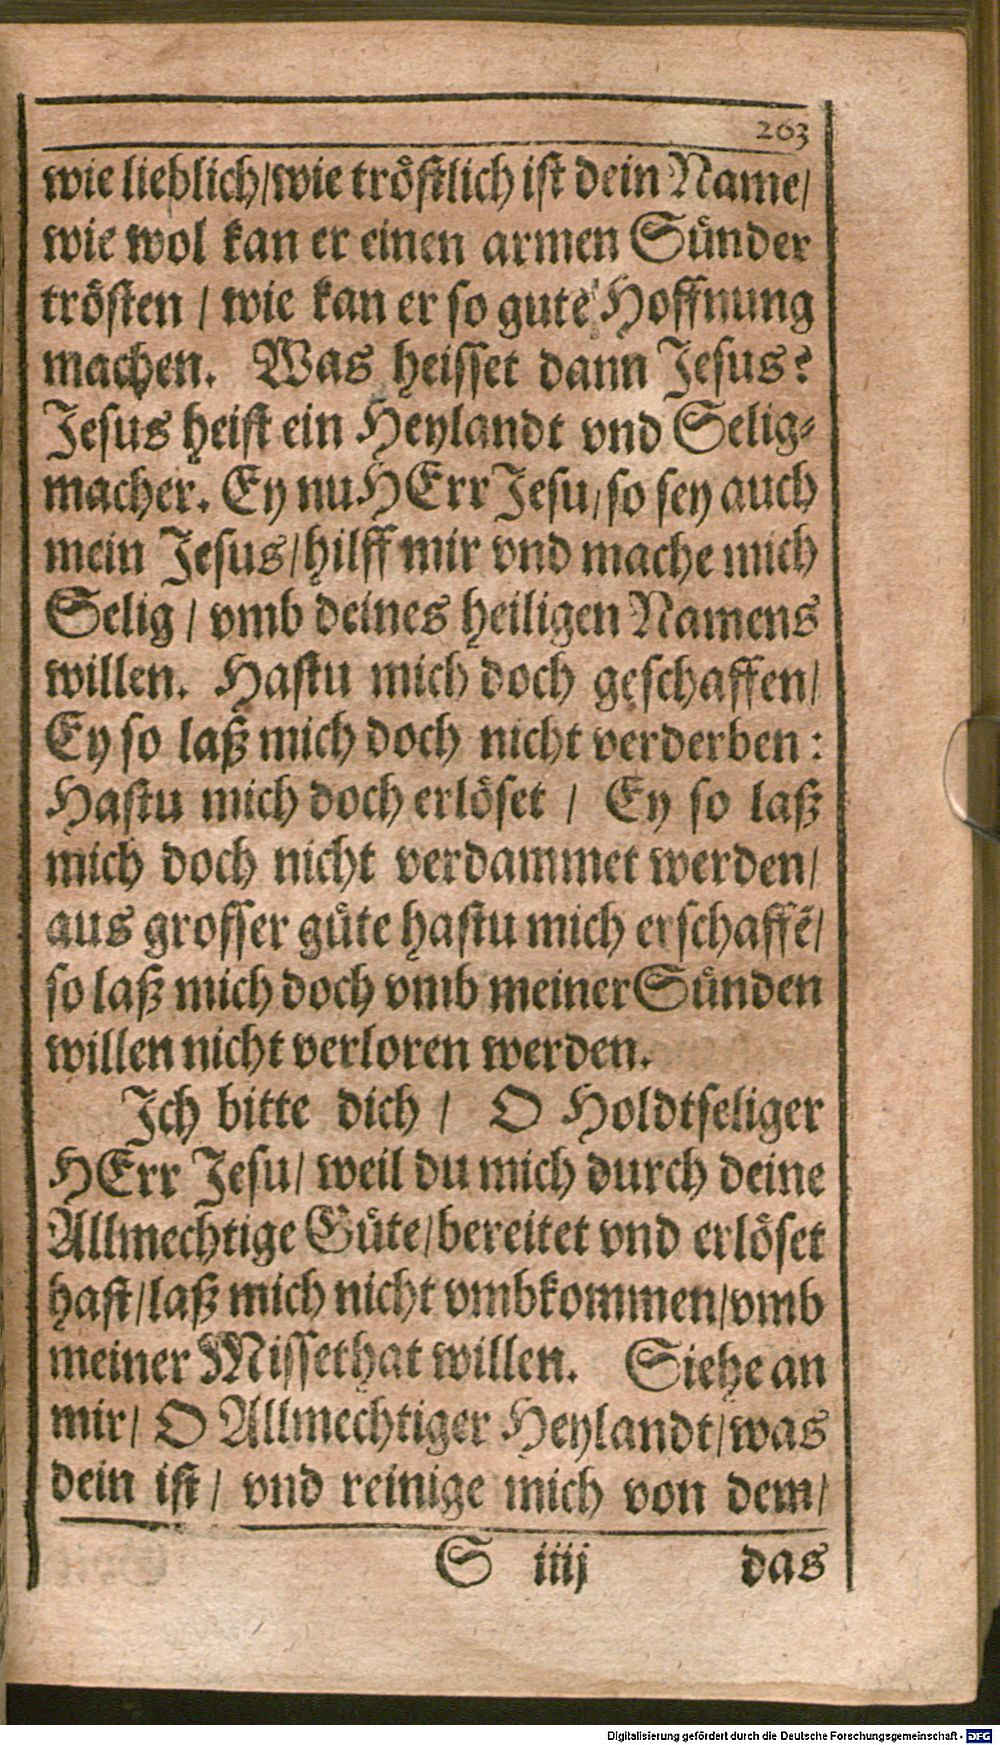 263
wie lieblich/wie tröstlich ist dein Name/
wie wol kan er einen armen Sünder
trösten / wie kan er so gute Hoffnung
machen. Was heisset dann Jesus?
Jesus heist ein Heylandt vnd Selig-
macher. Ey nu HErr Jesu/so sey auch
mein Jesus/hilff mir vnd mache mich
Selig / vmb deines heiligen Namens
willen. Hastu mich doch geschaffen/
Ey so laß mich doch nicht verderben:
Hastu mich doch erlöset / Ey so laß
mich doch nicht verdammet werden/
aus grosser güte hastu mich erschaffẽ/
so laß mich doch vmb meiner Sünden
willen nicht verloren werden.
Ich bitte dich / O Holdtseliger
HErr Jesu/ weil du mich durch deine
Allmechtige Güte/bereitet vnd erlöset
hast/laß mich nicht vmbkommen/vmb
meiner Missethat willen. Siehe an
mir/ O Allmechtiger Heylandt/was
dein ist/ vnd reinige mich von dem/
S iiij das
Digitalisierung gefördert durch die Deutsche Forschungsgemeinschaft - DFG